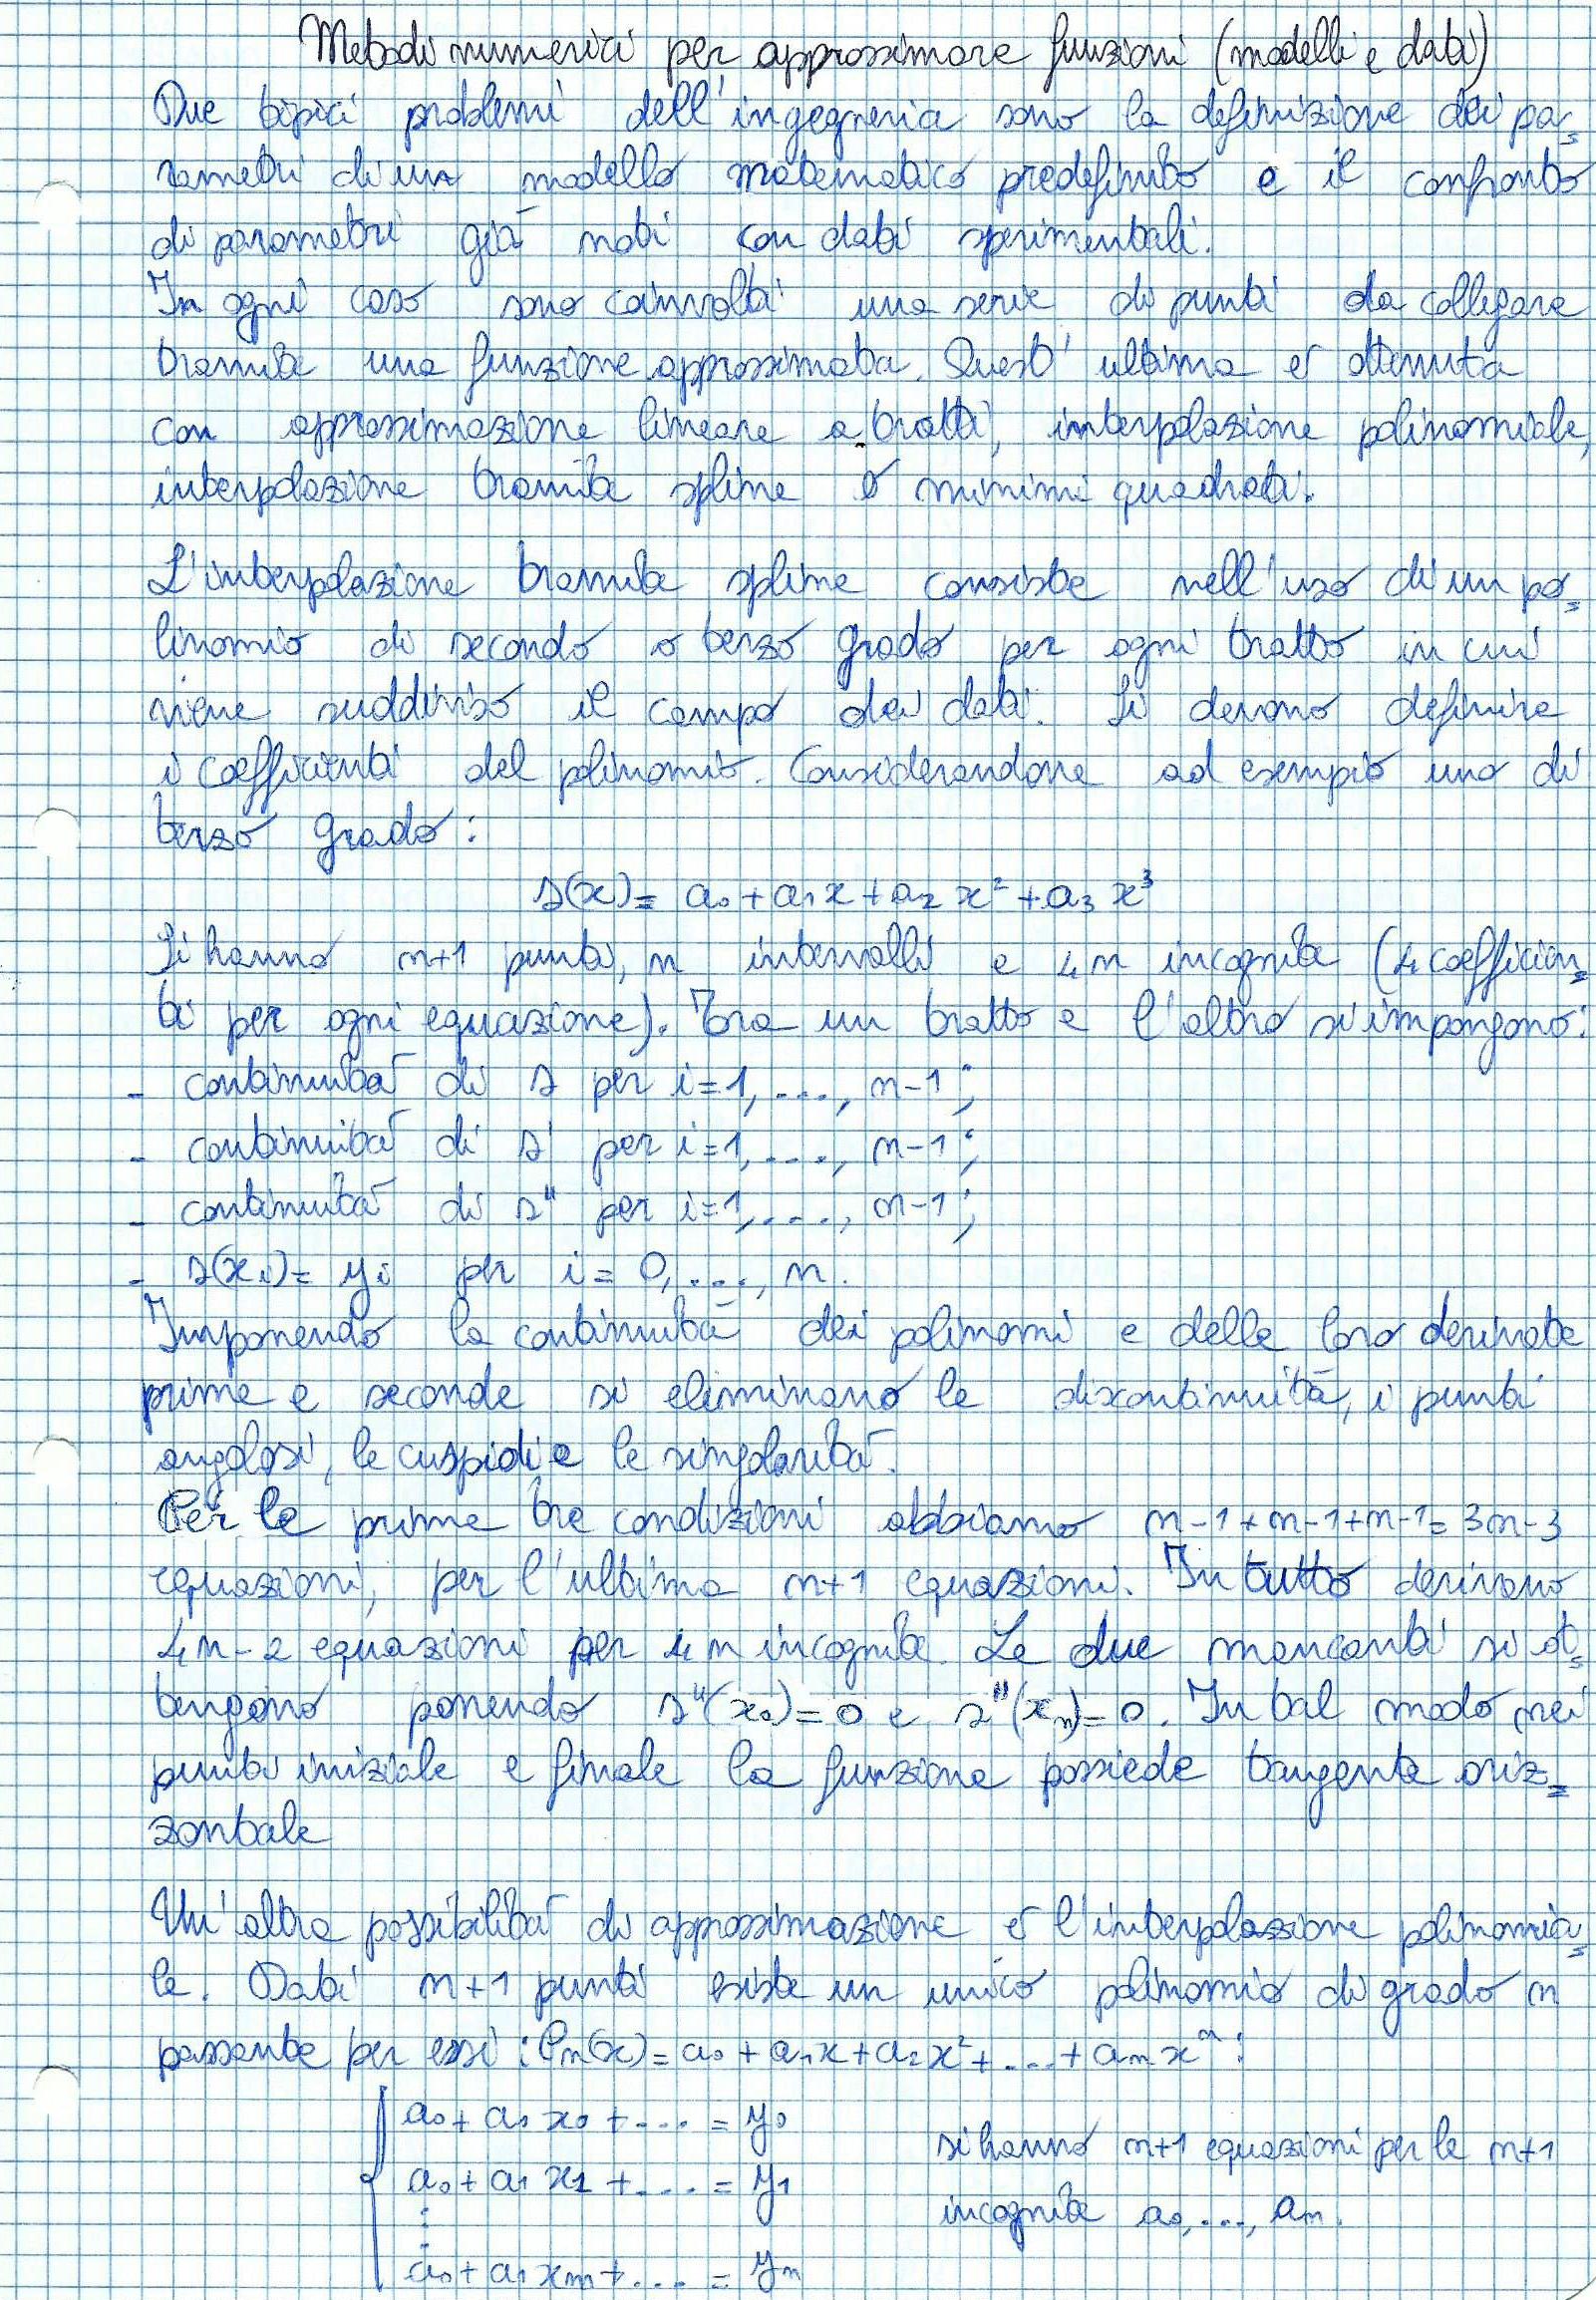 Metodi numerici per approssimare funzioni (modelli e dati)
Due tipici problemi dell'ingegneria sono la definizione dei pa=
rametri di un modello matematico predefinito e il confronto
di parametri già noti con dati sperimentali.
In ogni caso sono coinvolti una serie di punti da collegare
tramite una funzione approssimata. Quest'ultima è ottenuta
con approssimazione lineare a tratti, interpolazione polinomiale,
interpolazione tramite spline o minimi quadrati.
L'interpolazione tramite spline consiste nell'uso di un po=
linomio di secondo o terzo grado per ogni tratto in cui
viene suddiviso il campo dei dati. Si devono definire
i coefficienti del polinomio. Considerandone ad esempio uno di
terzo grado:
s(x) = a₀ + a₁x + a₂x² + a₃x³
Si hanno n+1 punti, n intervalli e 4n incognite (4 coefficien=
ti per ogni equazione). Tra un tratto e l'altro si impongono:
- continuità di s per i=1, ...., n-1;
- continuità di s' per i=1, ...., n-1;
- continuità di s" per i=1, ...., n-1;
- s(xᵢ) = yᵢ per i = 0, ...., n.
Imponendo la continuità dei polinomi e delle loro derivate
prime e seconde si eliminano le discontinuità, i punti
angolosi, le cuspidi e le singolarità.
Per le prime tre condizioni abbiamo n-1+n-1+n-1=3n-3
equazioni, per l'ultima n+1 equazioni. In tutto derivano
4n-2 equazioni per 4n incognite. Le due mancanti si ot=
tengono ponendo s"(x₀)=0 e s"(xₙ)=0. In tal modo nei
punti iniziale e finale la funzione possiede tangente oriz=
zontale
Un'altra possibilità di approssimazione è l'interpolazione polinomia=
le. Dati n+1 punti esiste un unico polinomio di grado n
passante per essi: Pₙ(x) = a₀ + a₁x + a₂x² + .... + aₙxⁿ:
a₀ + a₁x₀ + .... = y₀
a₀ + a₁x₁ + .... = y₁
⋮
a₀ + a₁xₙ + .... = yₙ
si hanno n+1 equazioni per le n+1
incognite a₀, ...., aₙ.